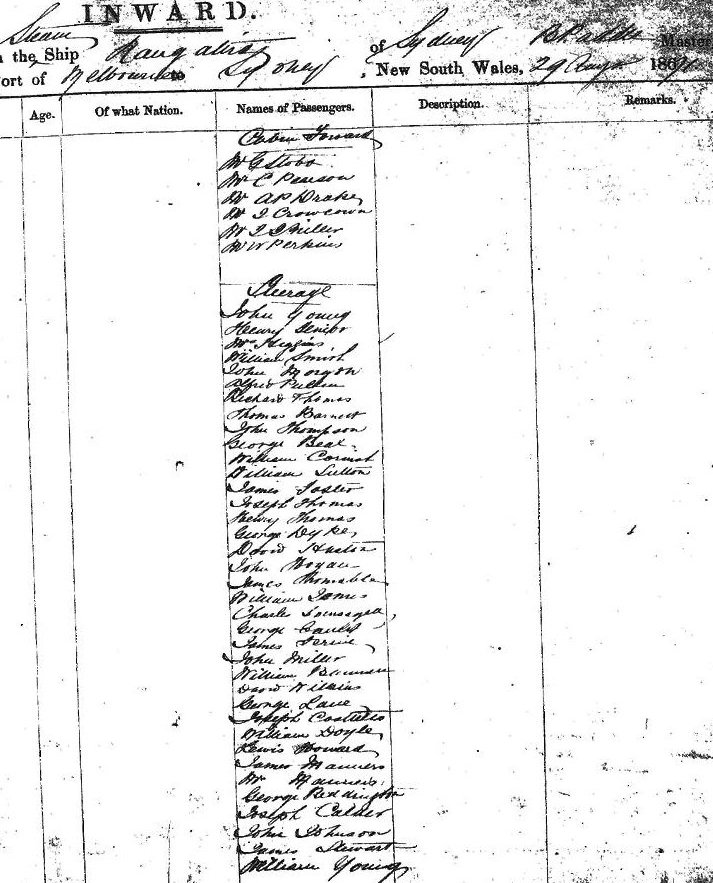 INWARD.
Steam
the Ship Rangatira of Sydney Master
ort of Melbourne to Sydney, New South Wales, 29 Augt 18
Age. Of what Nation. Names of Passengers. Description. Remarks.
Cabin Forward
Mr G Stobo
Mr C Pearson
Mr A P Drake
Mr J
Mr J S Miller
Mr W Perkins
Steerage
John Young
Henry Senior
Mr Higgins
William Smith
John Morgan
Alfred Pullen
Richard Thomas
Thomas Barnett
John Thompson
George Beal
William Cornish
William Sutton
James Foster
Joseph Thomas
Henry Thomas
George Dyke
David
John Hogan
James
William James
Charle
George
James
John Miller
William
David Wilkins
George Lane
Joseph Costello
William Doyle
Lewis Howard
James Manners
Mr Manners
George Reddington
Joseph Calder
John Johnson
James Stewart
William Young